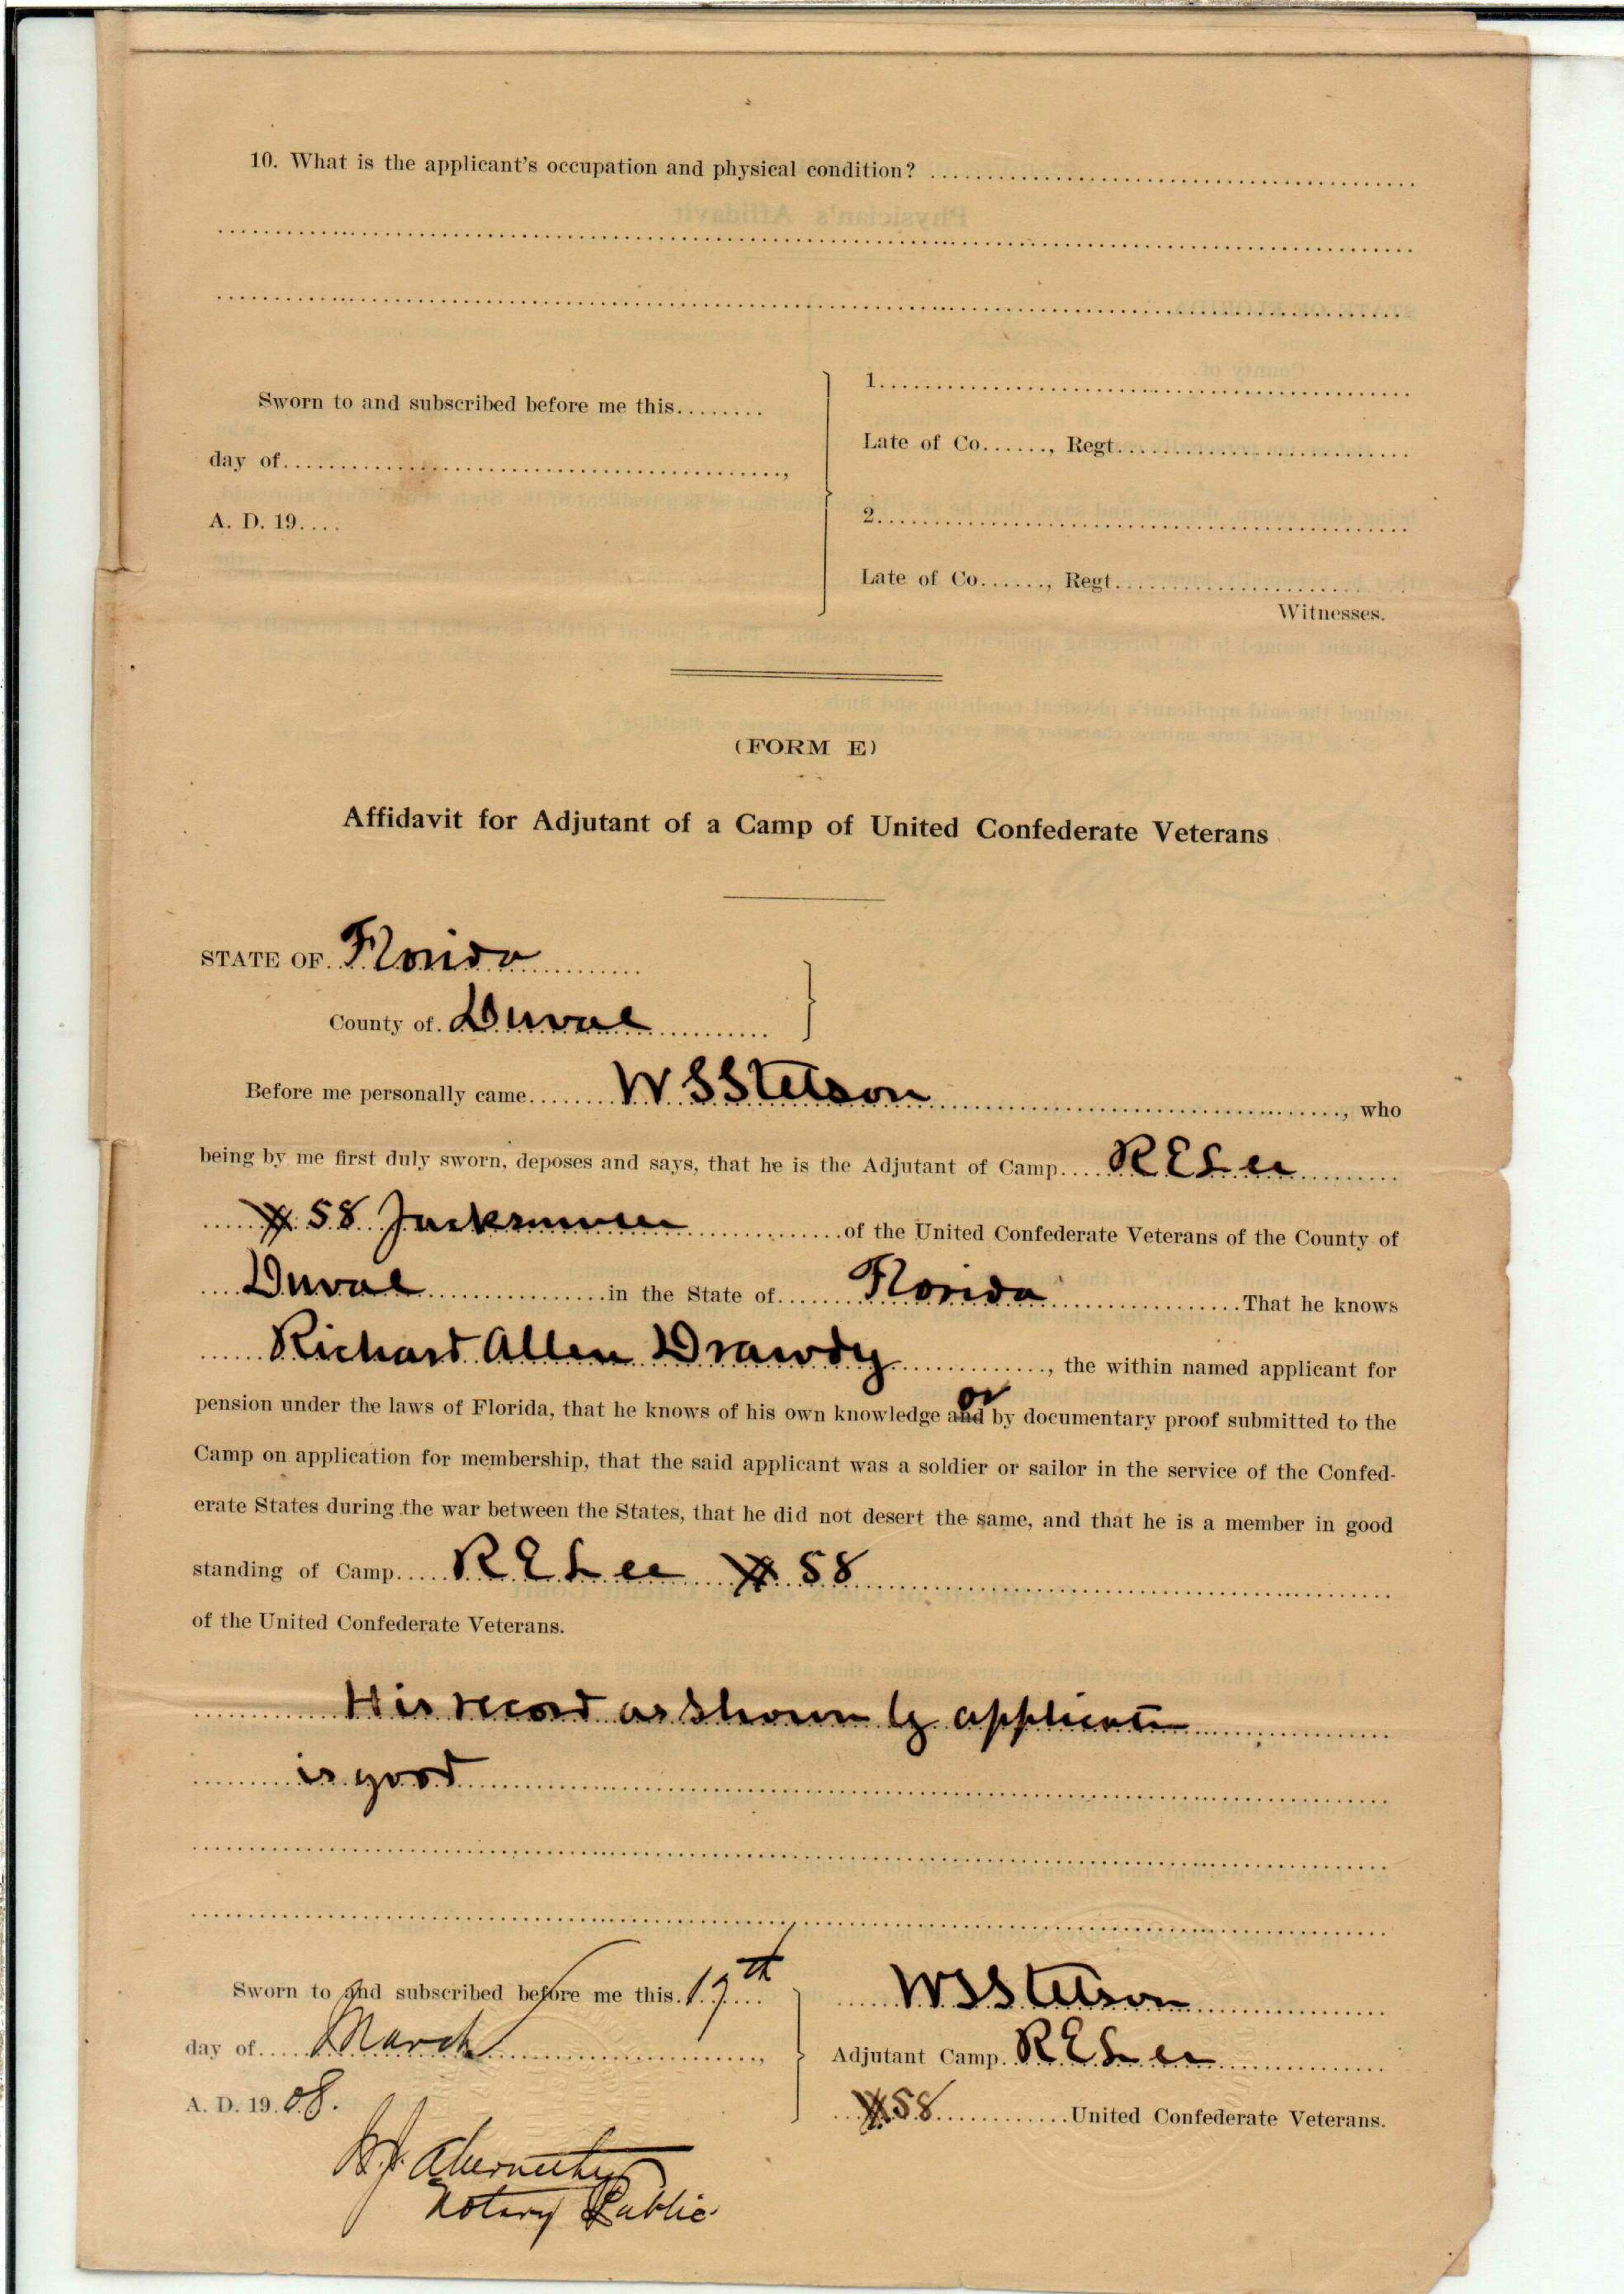 10. What is the applicant's occupation and physical condition?
Sworn to and subscribed before me this
day of
A. D. 19
1.
Late of Co......, Regt.
2.
Late of Co......, Regt.
Witnesses.
(FORM E)
Affidavit for Adjutant of a Camp of United Confederate Veterans
STATE OF Florida
County of Duval
Before me personally came W S Stetson, who
being by me first duly sworn, deposes and says, that he is the Adjutant of Camp R E Lee
# 58 Jacksonville of the United Confederate Veterans of the County of
Duval in the State of Florida That he knows
Richard Allen Drawdy, the within named applicant for
pension under the laws of Florida, that he knows of his own knowledge and or by documentary proof submitted to the
Camp on application for membership, that the said applicant was a soldier or sailor in the service of the Confed-
erate States during the war between the States, that he did not desert the same, and that he is a member in good
standing of Camp R E Lee # 58
of the United Confederate Veterans.
His record as shown by application
is good
Sworn to and subscribed before me this 19th
day of March,
A. D. 1908.
W S Stetson
Adjutant Camp R E Lee
#58 United Confederate Veterans.
Abernethy
Notary Public